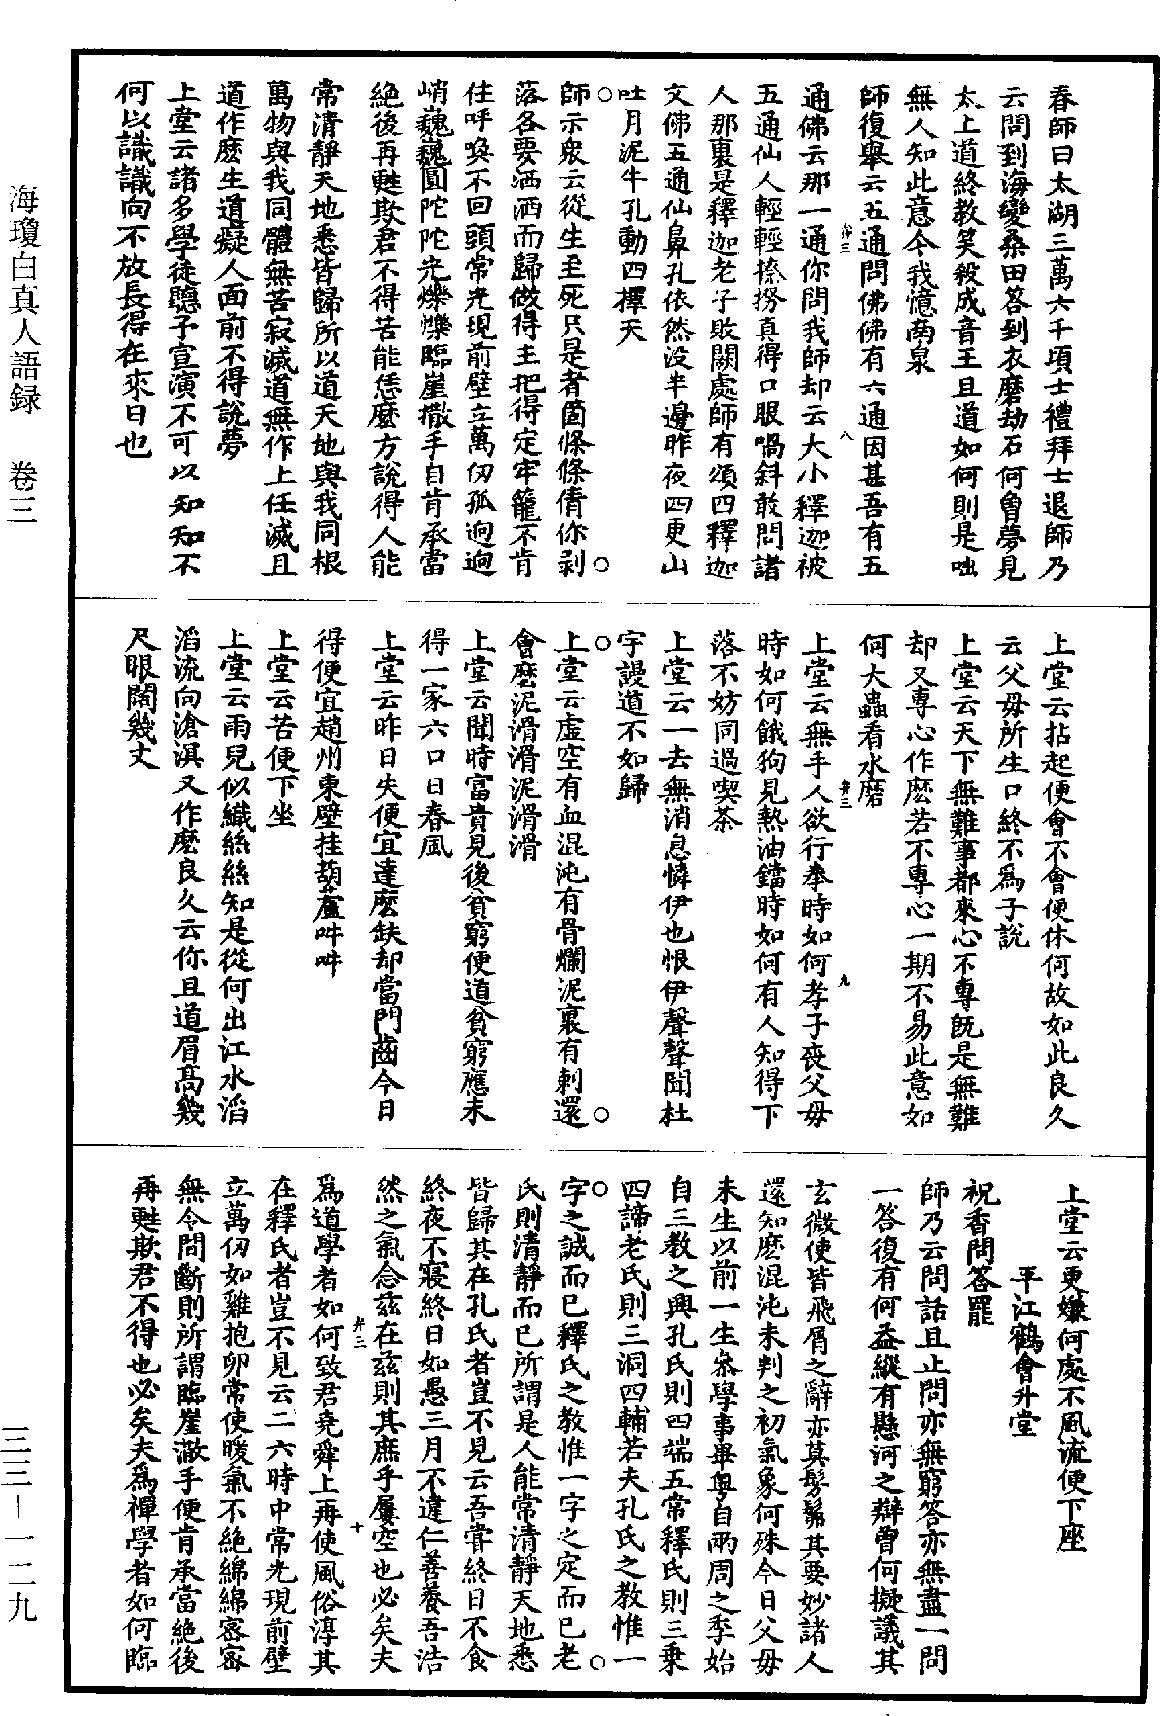 海瓊白真人語録　卷三
春師曰太湖三萬六千頃士禮拜士退師乃
云問到海變桑田答到衣磨劫石何曾夢見
太上道終教笑殺成音王且道如何則是咄
無人知此意令我憶南泉
師復舉云五通問佛佛有六通因甚吾有五
通佛云那一通你問我師却云大小釋迦被
五通仙人輕輕擦撈真得口眼喎斜敢問諸
人那裏是釋迦老子敗闕處師有頌四釋迦
文佛五通仙鼻孔依然没半邊昨夜四更山
吐月泥牛孔動四禪天
師示衆云從生至死只是者箇條條倩你剥
落各要洒洒而歸做得主把得定牢籠不肯
住呼喚不回頭常光現前壁立萬仞孤迥迥
峭巍巍圓陀陀光爍爍臨崖撒手自肯承當
絶後再甦欺君不得苦能恁麽方說得人能
常清靜天地悉皆歸所以道天地與我同根
萬物與我同體無苦寂滅道無作上任滅且
道作麽生道癡人面前不得說夢
上堂云諸多學徒聽予宣演不可以知知不
何以識識向不放長得在來日也
上堂云拈起便會不會便休何故如此良久
云父母所生口終不爲子說
上堂云天下無難事都來心不專既是無難
却又專心作麽若不專心一期不易此意如
何大蟲看水磨
上堂云無手人欲行拳時如何孝子喪父母
時如何餓狗見熱油鐺時如何有人知得下
落不妨同過喫茶
上堂云一去無消息憐伊也恨伊聲聲聞杜
宇謾道不如歸
上堂云虚空有血混沌有骨爛泥裏有刺還
會麽泥滑滑泥滑滑
上堂云聞時富貴見後貧窮便道貧窮應未
得一家六口日春風
上堂云昨日失便宜達麽缺却當門齒今日
得便宜趙州東壁挂葫蘆吽吽
上堂云苦便下坐
上堂云雨兒似織絲絲知是從何出江水滔
滔流向滄溟又作麽良久云你且道眉髙幾
尺眼闊幾丈
上堂云更嫌何處不風流便下座
平江鶴會升堂
祝香問答罷
師乃云問話且止問亦無窮答亦無盡一問
一答復有何益縱有懸河之辯曾何擬議其
玄微使皆飛屑之辭亦莫髣髴其要妙諸人
還知麽混沌未判之初氣象何殊今日父母
未生以前一生叅學事畢粤自兩周之季始
自三教之興孔氏則四端五常釋氏則三乗
四諦老氏則三洞四輔若夫孔氏之教惟一
字之誠而已釋氏之教惟一字之定而已老
氏則清靜而已所謂是人能常清靜天地悉
皆歸其在孔氏者豈不見云吾甞終日不食
終夜不寢終日如愚三月不違仁善養吾浩
然之氣念兹在兹則其庶乎屢空也必矣夫
爲道學者如何致君堯舜上再使風俗淳其
在釋氏者豈不見云二六時中常光現前壁
立萬仞如雞抱卵常使暖氣不絶綿綿密密
無令問斷則所謂臨崖撒手便肯承當絶後
再甦欺君不得也必矣夫爲禪學者如何臨
三三—一二九